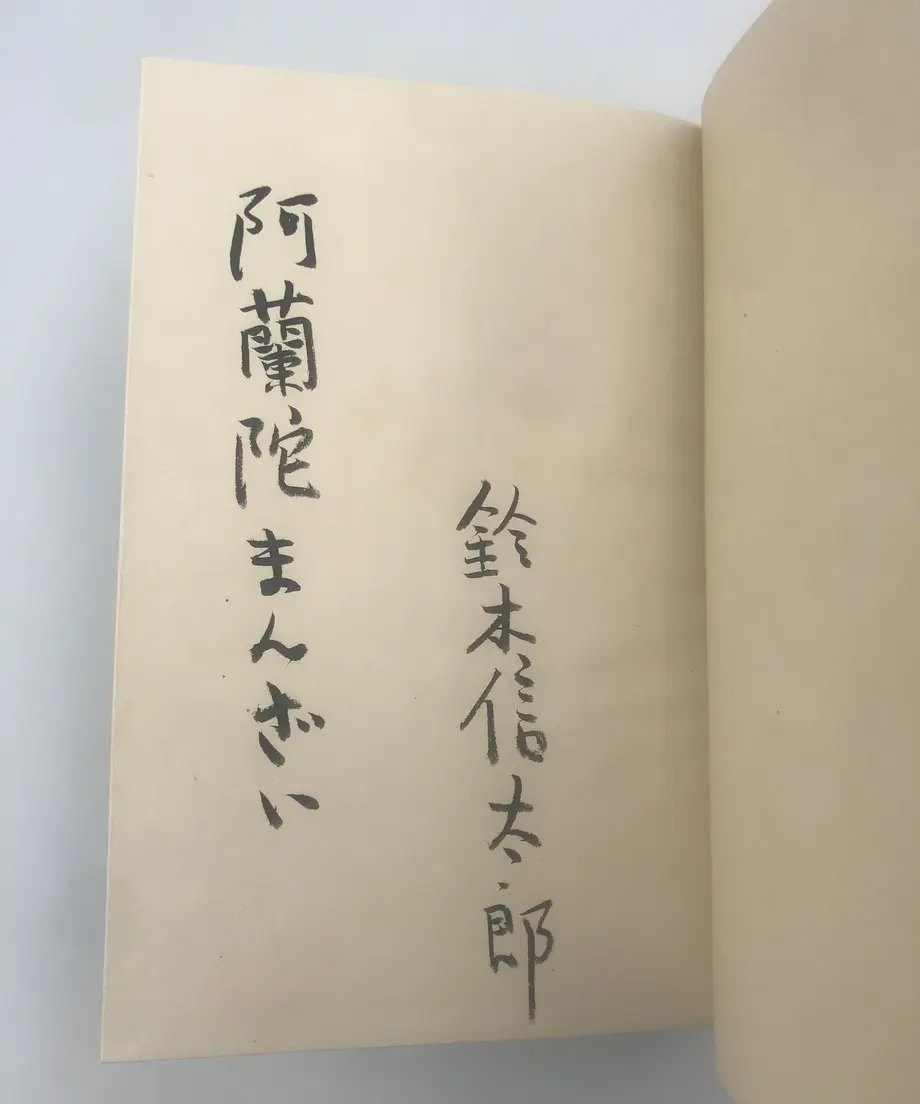 鈴木信太郎
阿蘭陀まんざい